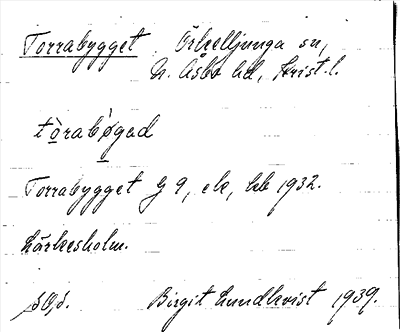 Torrabygget Örkelljunga sn,
N. Åsbo hd, Krist. l.
tòrabø̀gad
Torrabygget G 9, ek, kbl 1932.
Lärkesholm.
Birgit Lundkvist 1939.